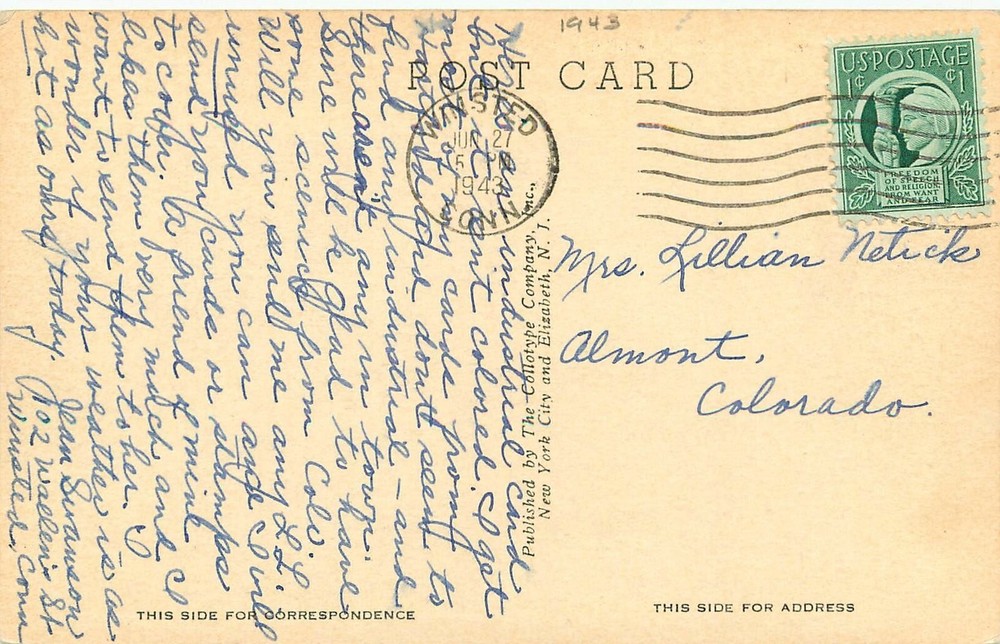 1943
POST CARD
WINSTED
JUN 27
5 PM
1943
CONN.
U.S. POSTAGE
1¢ ¢1
FREEDOM
OF SPEECH
AND RELIGION,
FROM WANT
AND FEAR
Here is an industrial card
but it isn't colored. I get
most of my cards from
Hartford and don't seem to
find any industrial - and
there aren't any in town.
Sure will be glad to have
some scenics from Colo.
Will you send me any L.L.
unused you can and I will
send you cards or stamps
to cover. A friend of mine
likes them very much and I
want to send them to her. I
wonder if your weather is as
hot as ours today.
Jean Swanson
112 Wallens St
Winsted, Conn
Published by The Collotype Company, Inc.,
New York City and Elizabeth, N. J.
Mrs. Lillian Netick
Almont,
Colorado.
THIS SIDE FOR CORRESPONDENCE
THIS SIDE FOR ADDRESS